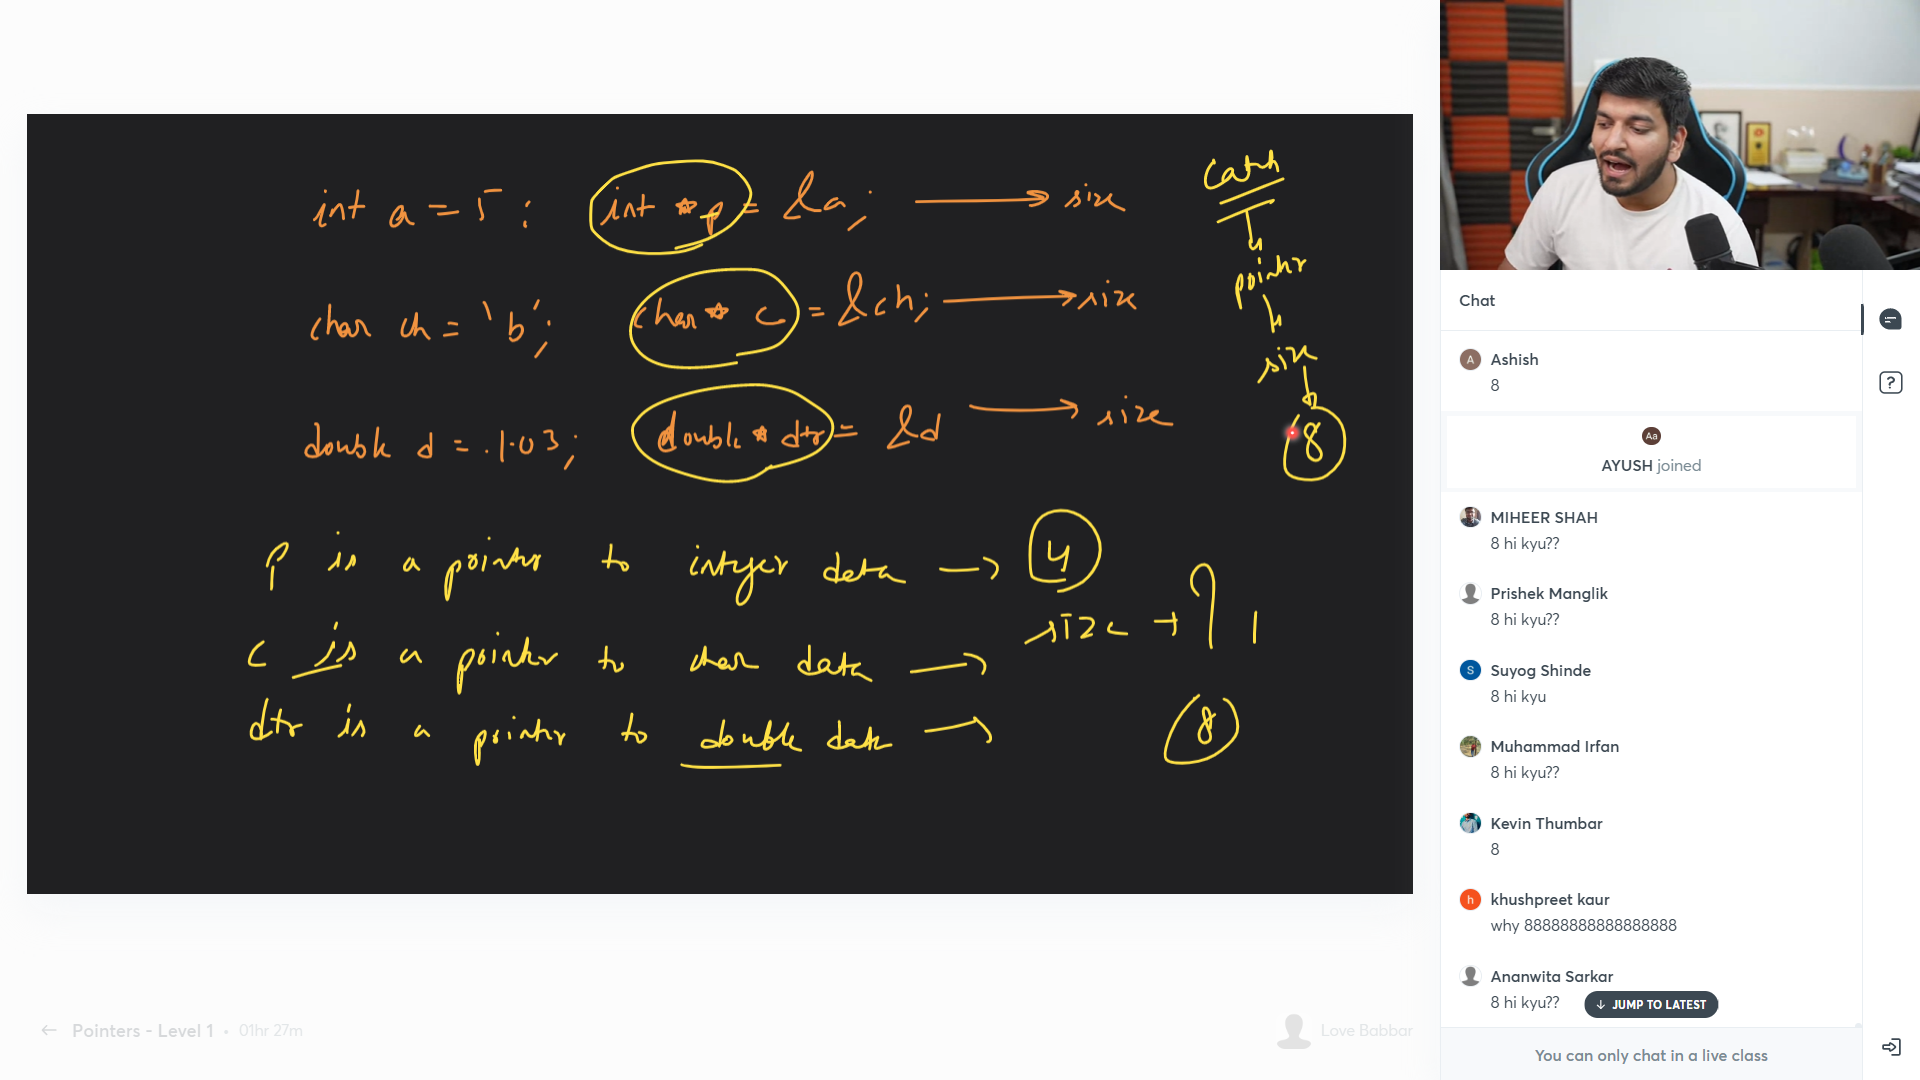 int a = 5; int *p = &a; → size
char ch = 'b'; char* c = &ch; → size
double d = .1.03; double* dtr = &d → size
Catch
pointer
size
8
P is a pointer to integer data → 4
size → ? 1
c is a pointer to char data →
dtr is a pointer to double data → 8
← Pointers - Level 1 • 01hr 27m
Love Babbar
Chat
A Ashish
8
Aa
AYUSH joined
MIHEER SHAH
8 hi kyu??
Prishek Manglik
8 hi kyu??
S Suyog Shinde
8 hi kyu
Muhammad Irfan
8 hi kyu??
Kevin Thumbar
8
h khushpreet kaur
why 88888888888888888
Ananwita Sarkar
8 hi kyu??
↓ JUMP TO LATEST
You can only chat in a live class
?